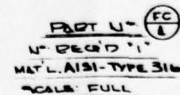 PART Nº FC
1
Nº REC'D "1"
MAT'L. AISI-TYPE 316
SCALE: FULL